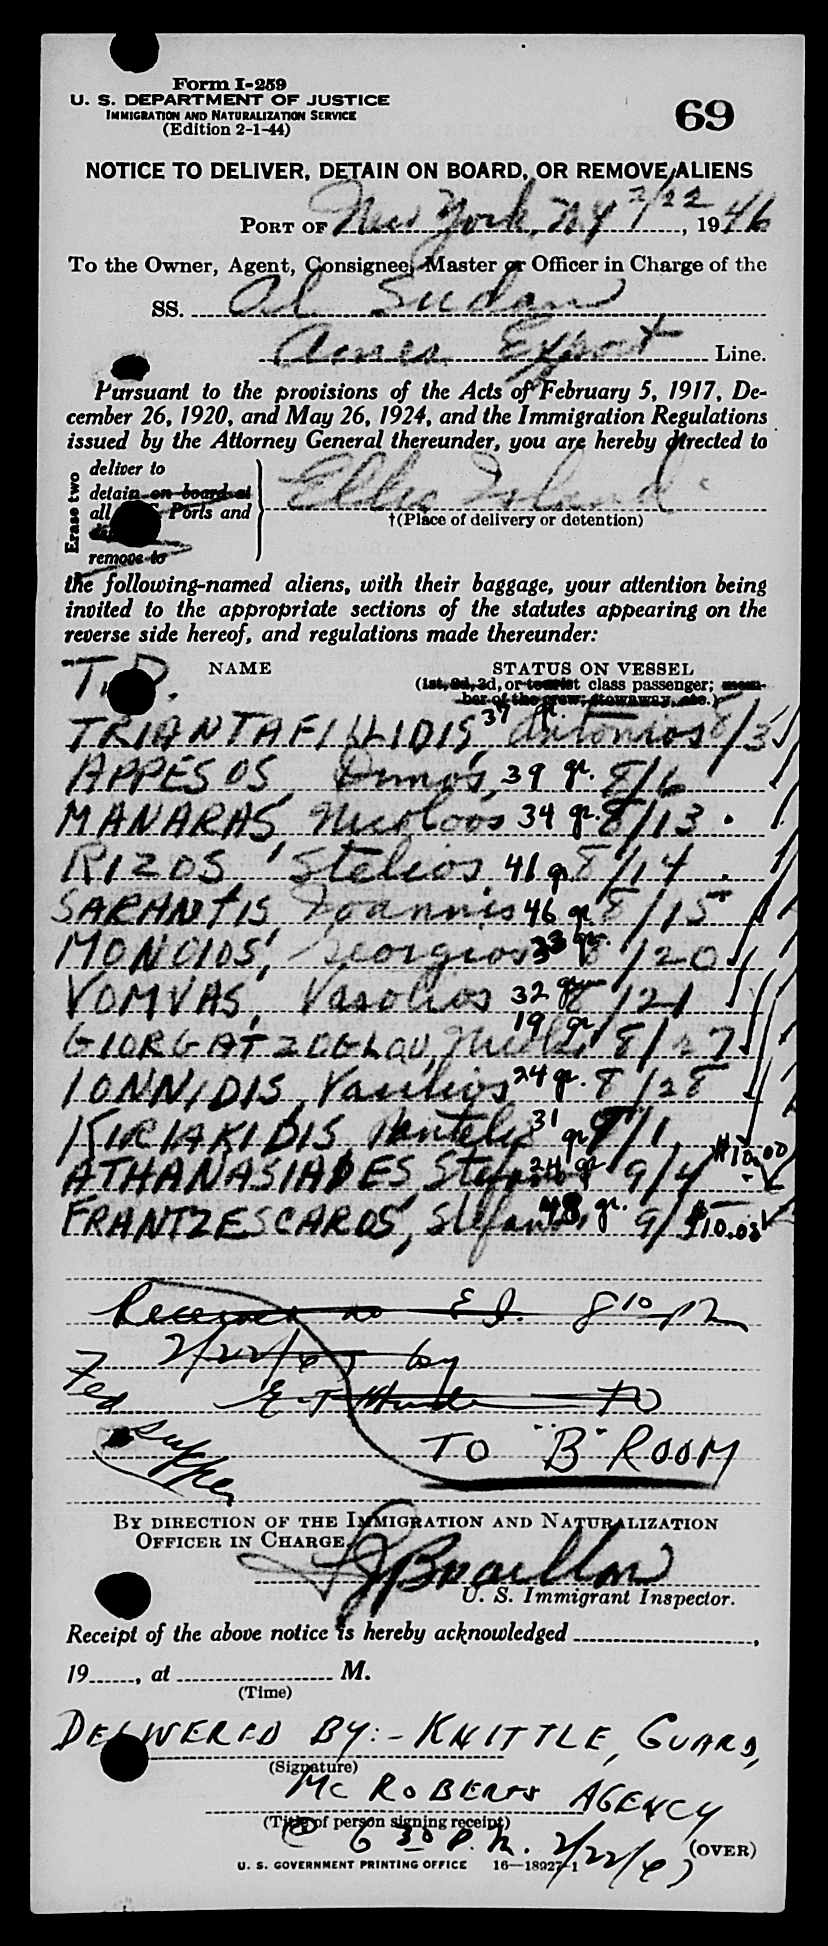 Form I-259
U. S. DEPARTMENT OF JUSTICE
IMMIGRATION AND NATURALIZATION SERVICE
(Edition 2-1-44)
69
NOTICE TO DELIVER, DETAIN ON BOARD, OR REMOVE ALIENS
PORT OF New York, N.Y 2/22, 1946
To the Owner, Agent, Consignee, Master or Officer in Charge of the
SS. Al Sudan
Amer Export Line.
Pursuant to the provisions of the Acts of February 5, 1917, De-
cember 26, 1920, and May 26, 1924, and the Immigration Regulations
issued by the Attorney General thereunder, you are hereby directed to
Erase two
deliver to
detain on board at
all Ports and
remove to
Ellis Island
†(Place of delivery or detention)
the following-named aliens, with their baggage, your attention being
invited to the appropriate sections of the statutes appearing on the
reverse side hereof, and regulations made thereunder:
T.D. NAME STATUS ON VESSEL
(1st, 2d, 3d, or tourist class passenger; mem-
ber of the crew; stowaway, etc.)
TRIANTAFILLIDIS, Antonios 37 gr. 8/3
APPESOS, Dimos, 39 gr. 8/6
MANARAS Nicoloos 34 gr. 8/13
RIZOS, Stelios 41 gr 8/14
SARANTIS Ioannis 46 gr 8/15
MONOIOS, Georgios 33 gr. 8/20
VOMVAS, Vasolios 32 gr 8/21
GIORGATZOGLOU, 19 gr 8/27
IONNIDIS, Vasilios 24 gr. 8/28
KIRIAKIDIS Pantelis 31 gr 9/1
ATHANASIADES, 24 gr 9/4 $10.00
FRANTZESCAROS, Stefanos 48, gr. 9/ $10.00
Received E I. 8 10 PM
2/22/47 by
Fed
E. T TO
Supper
TO "B" ROOM
BY DIRECTION OF THE IMMIGRATION AND NATURALIZATION
OFFICER IN CHARGE
U. S. Immigrant Inspector.
Receipt of the above notice is hereby acknowledged ,
19 , at M.
(Time)
DELIVERED BY:- KNITTLE, GUARD,
(Signature)
MC ROBERTS AGENCY
(Title of person signing receipt)
@ 6 30 P.M. 2/22/47
(OVER)
U. S. GOVERNMENT PRINTING OFFICE 16—18927-1